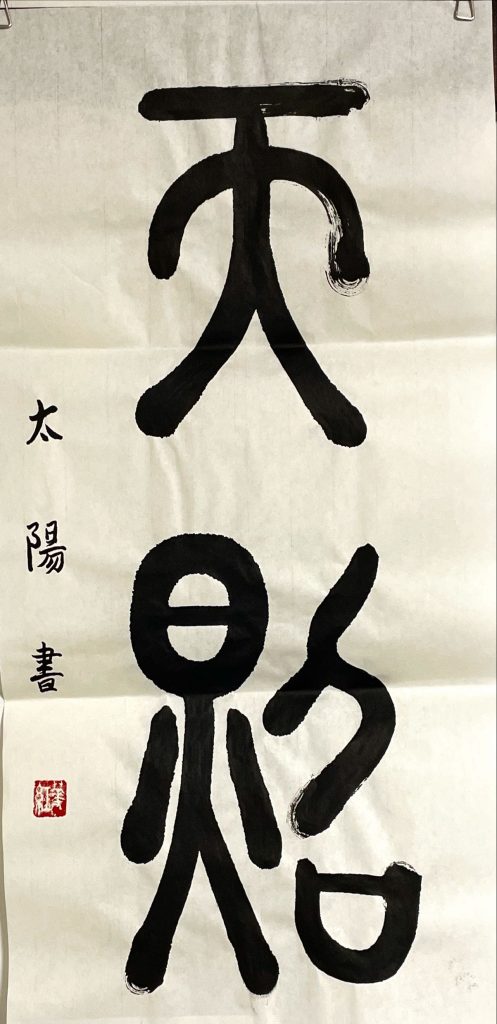 天照
太陽書